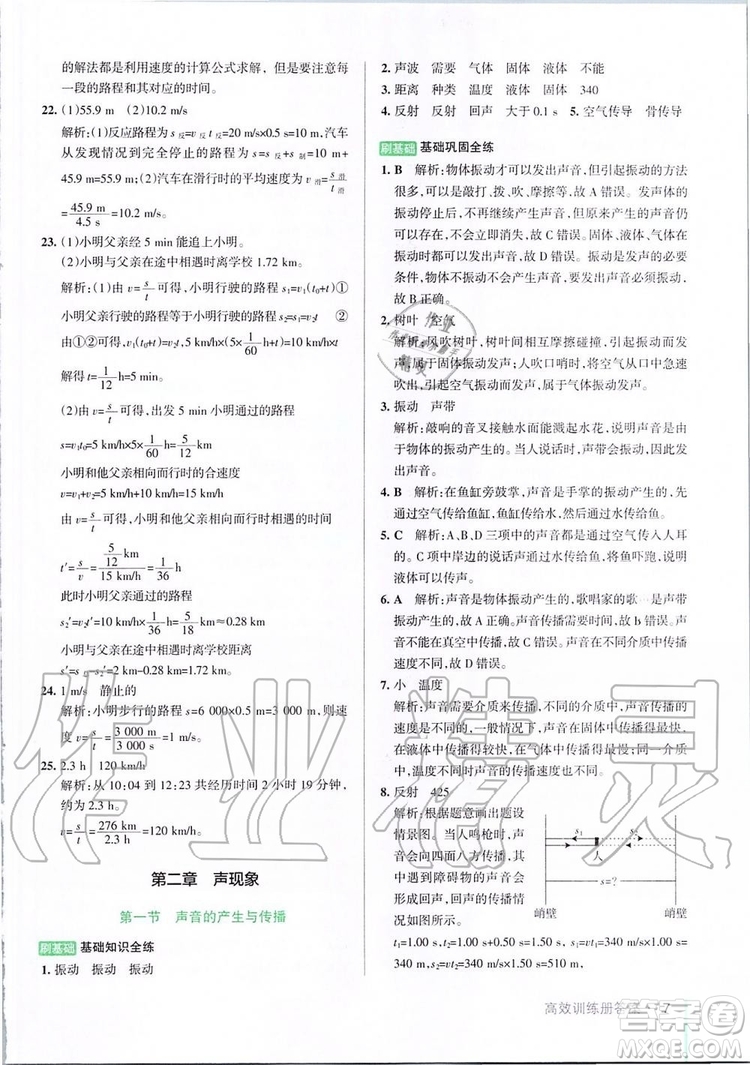 的解法都是利用速度的计算公式求解，但是要注意每
一段的路程和其对应的时间。
22. (1)55.9 m　(2)10.2 m/s
解析：(1)反应路程为 s反=v反t反=20 m/s×0.5 s=10 m，汽车
从发现情况到完全停止的路程 s=s反+s制=10 m+
45.9 m=55.9 m。(2)汽车在滑行时的平均速度为 v滑=s滑/t滑
=45.9 m/4.5 s=10.2 m/s。
23. (1)小明父亲经 5 min 能追上小明。
(2)小明与父亲在途中相遇时离学校 1.72 km。
解析：(1)由 v=s/t可得，小明行驶的路程 s1=v1(t0+t)①
小明父亲行驶的路程等于小明行驶的路程 s1=v2t　②
由①②可得，v1(t0+t)=v2t，即 5 km/h×(5×1/60 h+t)=10 km/h×t
解得 t=1/12 h=5 min
(2)由 v=s/t可得，出发 5 min 小明通过的路程
s=v1t0=5 km/h×5×1/60 h=5/12 km
小明和他父亲相向而行时的合速度
v=v1+v2=5 km/h+10 km/h=15 km/h
由 v=s/t可得，小明和他父亲相向而行到相遇的时间
t′=s/v=5/12 km/15 km/h=1/36 h
此时小明父亲行驶的路程
s2′=v2t′=10 km/h×1/36 h=10/36 km≈0.28 km
小明与父亲在途中相遇时离学校距离
s′=s-s2′=2 km-0.28 km=1.72 km。
24. 1 m/s　静止的
解析：小明步行的路程 s=6 000×0.5 m=3 000 m，则速
度 v=s/t=3 000 m/3 000 s=1 m/s。
25. 2.3 h　120 km/h
解析：从 10:04 到 12:23 共经历时间 2 小时 19 分钟，
约为 2.3 h。
v=s/t=276 km/2.3 h=120 km/h。
第二章　声现象
第一节　声音的产生与传播
刷基础　基础知识全练
1. 振动　振动　振动
2. 声波　需要　气体　固体　液体　不能
3. 距离　种类　温度　液体　固体　340
4. 反射　反射　回声　大于 0.1 s　5. 空气传导　骨传导
刷基础　基础巩固全练
1. B　解析：物体振动才可以发出声音，但引起振动的方法
很多，可以是敲打、拨、吹、摩擦等，故 A 错误。发声体的
振动停止后，不再继续产生声音，但原来产生的声音仍
可以存在，不会立即消失，故 C 错误。固体、液体、气体在
振动时都可以发出声音，故 D 错误。振动是发声的必要
条件，物体不振动不会产生声音，发出声音必须振动，
故 B 正确。
2. 树叶　空气
解析：风吹树叶，树叶间相互摩擦碰撞，引起振动发
声，属于固体发声；人吹口哨时，将空气从口中急速
吹出，引起空气振动而产生声音，属于气体发声。
3. 振动　声带
解析：敲响的音叉接触水面而能溅起水花，说明声音是
由于物体的振动产生的。当人说话时，声带会振动，从而
发出声音。
4. B　解析：在鱼缸旁鼓掌，声音是手掌的振动产生的，先
通过空气传给鱼缸，然后由鱼缸传给水，最后由水传给鱼。
5. C　解析：A、B、D 三项中的声音都是通过空气传入人耳
的。C 项中岸边的说话声通过水传给鱼，将鱼吓跑，说明
液体可以传声。
6. A　解析：声音是物体振动产生的，歌唱家的歌声是声带
振动产生的，故 A 正确。声音传播需要时间，故 B 错误。
声音不能在真空中传播，故 C 错误。在不同介质中传播的
声音速度不同，故 D 错误。
7. 小　温度
解析：声音需要介质来传播，不同的介质，声音传播的速
度不同。一般情况下，声音在固体中传播得最快，在液
体中传播得较快，在气体中传播得最慢；同一种介质，
温度不同时声音传播的速度也不同。
8. 反射　425
解析：根据题意画出题设
情景图。当人鸣枪时，声
音向两边以相同速度传
播，遇到障碍物的声音再
以这个速度反射传播。则
s1　s2
人
s=?
峭壁　峭壁
t1=1.00 s，t2=1.00 s+0.50 s=1.50 s，2s1=vt1=340 m/s×1.00 s=
340 m，s2=vt2=340 m/s×1.50 s=
高效训练册答案　7
作业精灵
答案圈
MXQE.COM